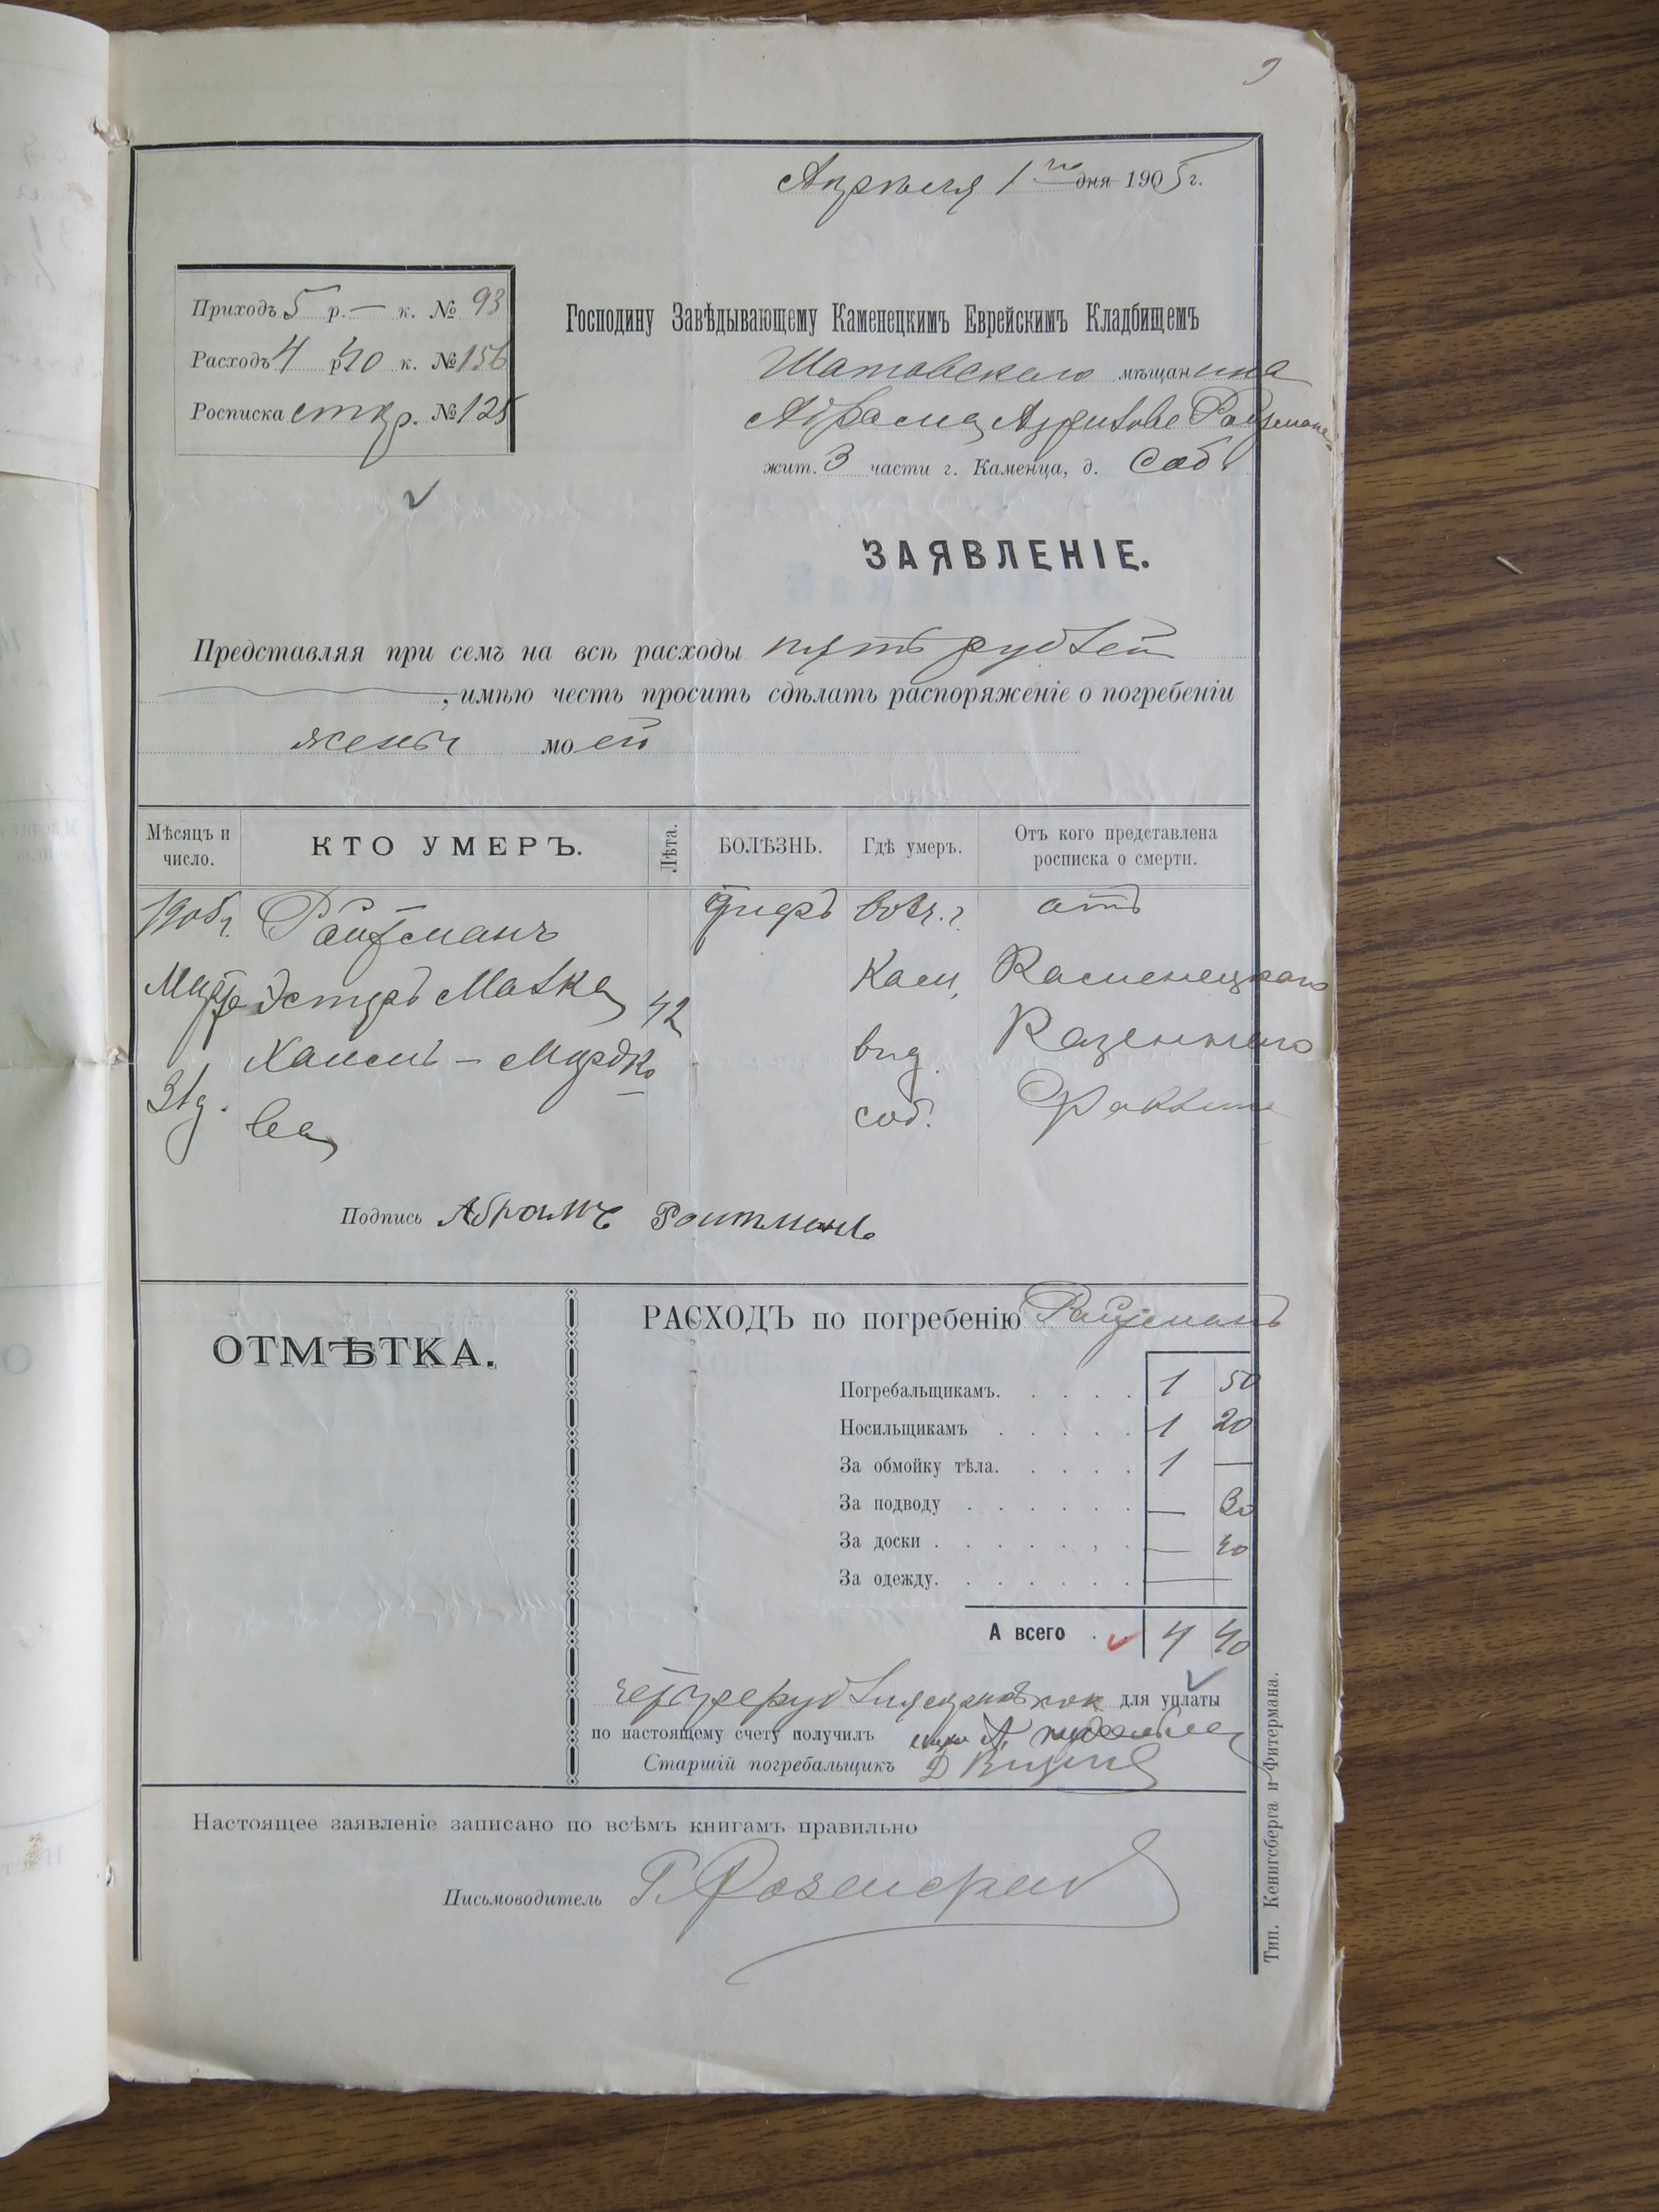 9
Апрѣля 1го дня 1905 г.
Приходъ 5 р. — к. № 93
Расходъ 4 р 40 к. № 156
Росписка стар. № 125
Господину Завѣдывающему Каменецкимъ Еврейскимъ Кладбищемъ
Шатавскаго мѣщанина
Абрама
жит. 3 части г. Каменца, д. Соб
ЗАЯВЛЕНІЕ.
Представляя при семъ на всѣ расходы пять рублей
, имѣю честь просить сдѣлать распоряженіе о погребеніи
жены моей
Мѣсяцъ и число.
КТО УМЕРЪ.
Лѣта.
БОЛѢЗНЬ.
Гдѣ умеръ.
Отъ кого представлена росписка о смерти.
1905 г. Ройтманъ тифъ отъ
Марта Эстеръ Малка 42 Кам. Каменецкаго
Хаимъ - Мордко Казеннаго
31 д. ва соб.
Подпись Абрамъ Ройтманъ
ОТМѢТКА.
РАСХОДЪ по погребенію Ройтманъ
Погребальщикамъ. . . . . 1 50
Носильщикамъ . . . . . 1 20
За обмойку тѣла. . . . . 1 —
За подводу . . . . . . — 30
За доски . . . . . . . — 40
За одежду. . . . . . . —
А всего . . 4 40
четыре руб для уплаты
по настоящему счету получилъ
Старшій погребальщикъ
Настоящее заявленіе записано по всѣмъ книгамъ правильно
Письмоводитель
Тип. Кенигсберга и Фитермана.